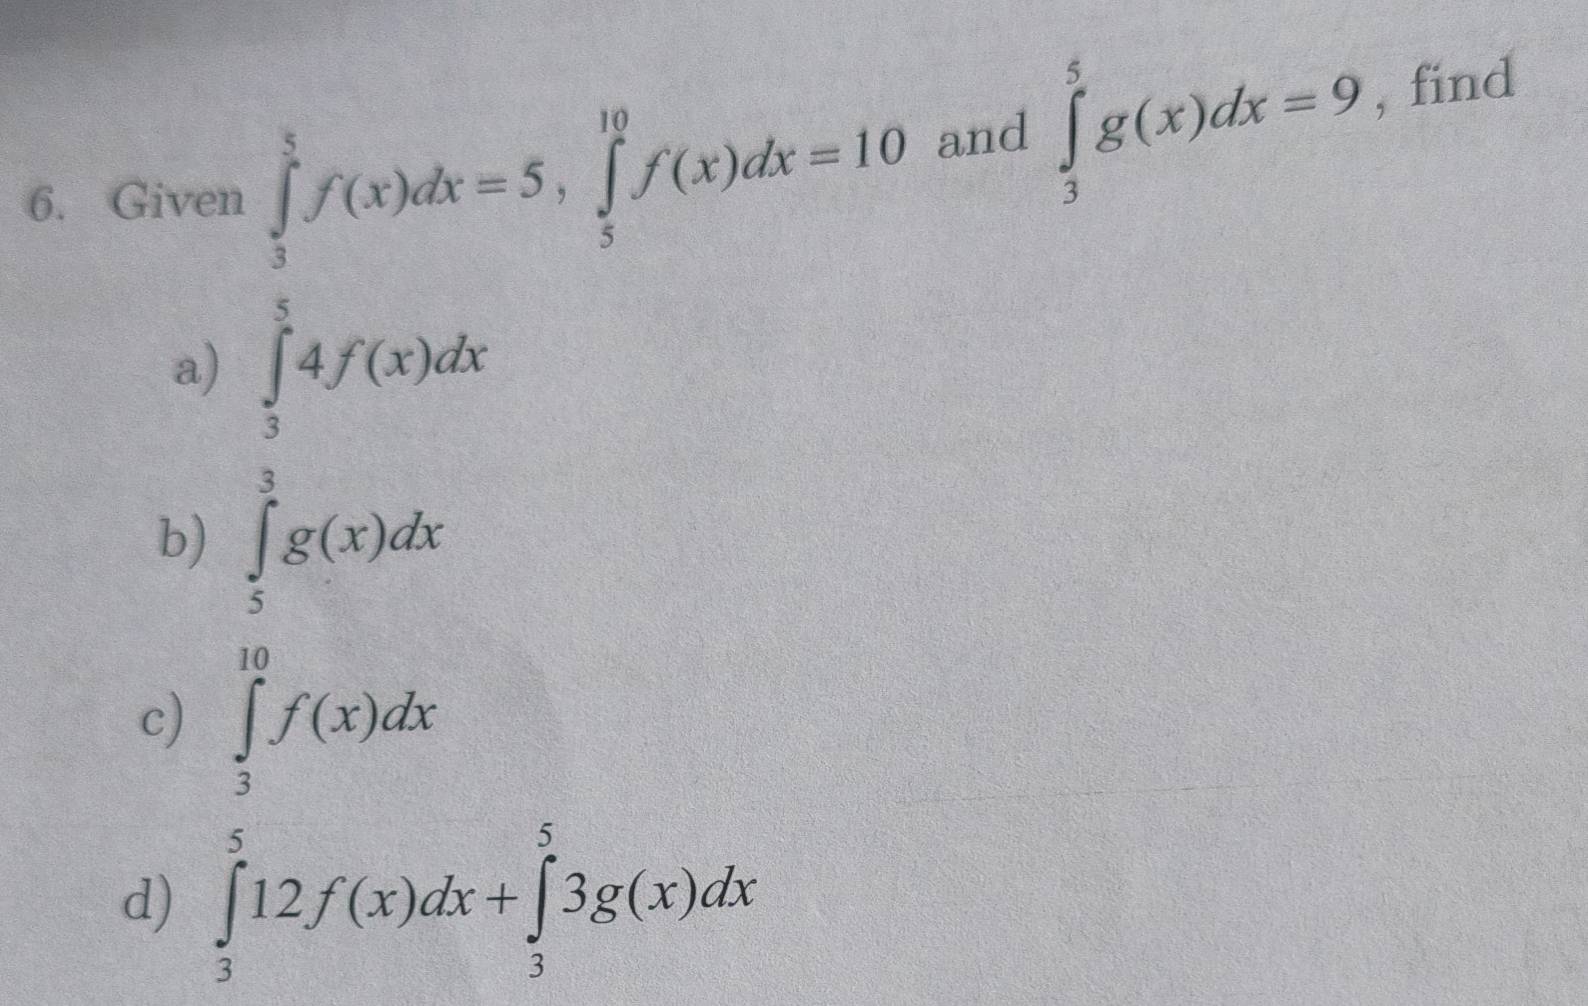 6. Given $\int_{3}^{5} f(x)dx = 5$, $\int_{5}^{10} f(x)dx = 10$ and $\int_{3}^{5} g(x)dx = 9$, find
a) $\int_{3}^{5} 4f(x)dx$
b) $\int_{5}^{3} g(x)dx$
c) $\int_{3}^{10} f(x)dx$
d) $\int_{3}^{5} 12f(x)dx + \int_{3}^{5} 3g(x)dx$